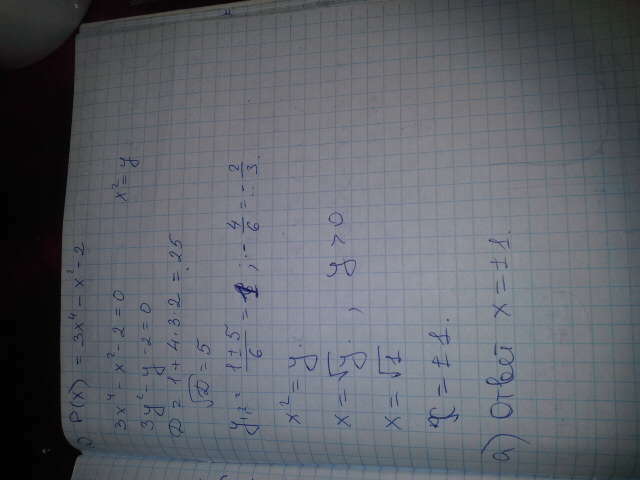 ) P(x) = 3x⁴ - x² - 2
3x⁴ - x² - 2 = 0 x² = y
3y² - y - 2 = 0
D = 1 + 4·3·2 = 25
√D = 5
y₁,₂ = (1±5)/6 = 1 ; - 4/6 = - 2/3
x² = y.
x = √y. , y > 0
x = √1
x = ±1.
а) Ответ x = ±1.